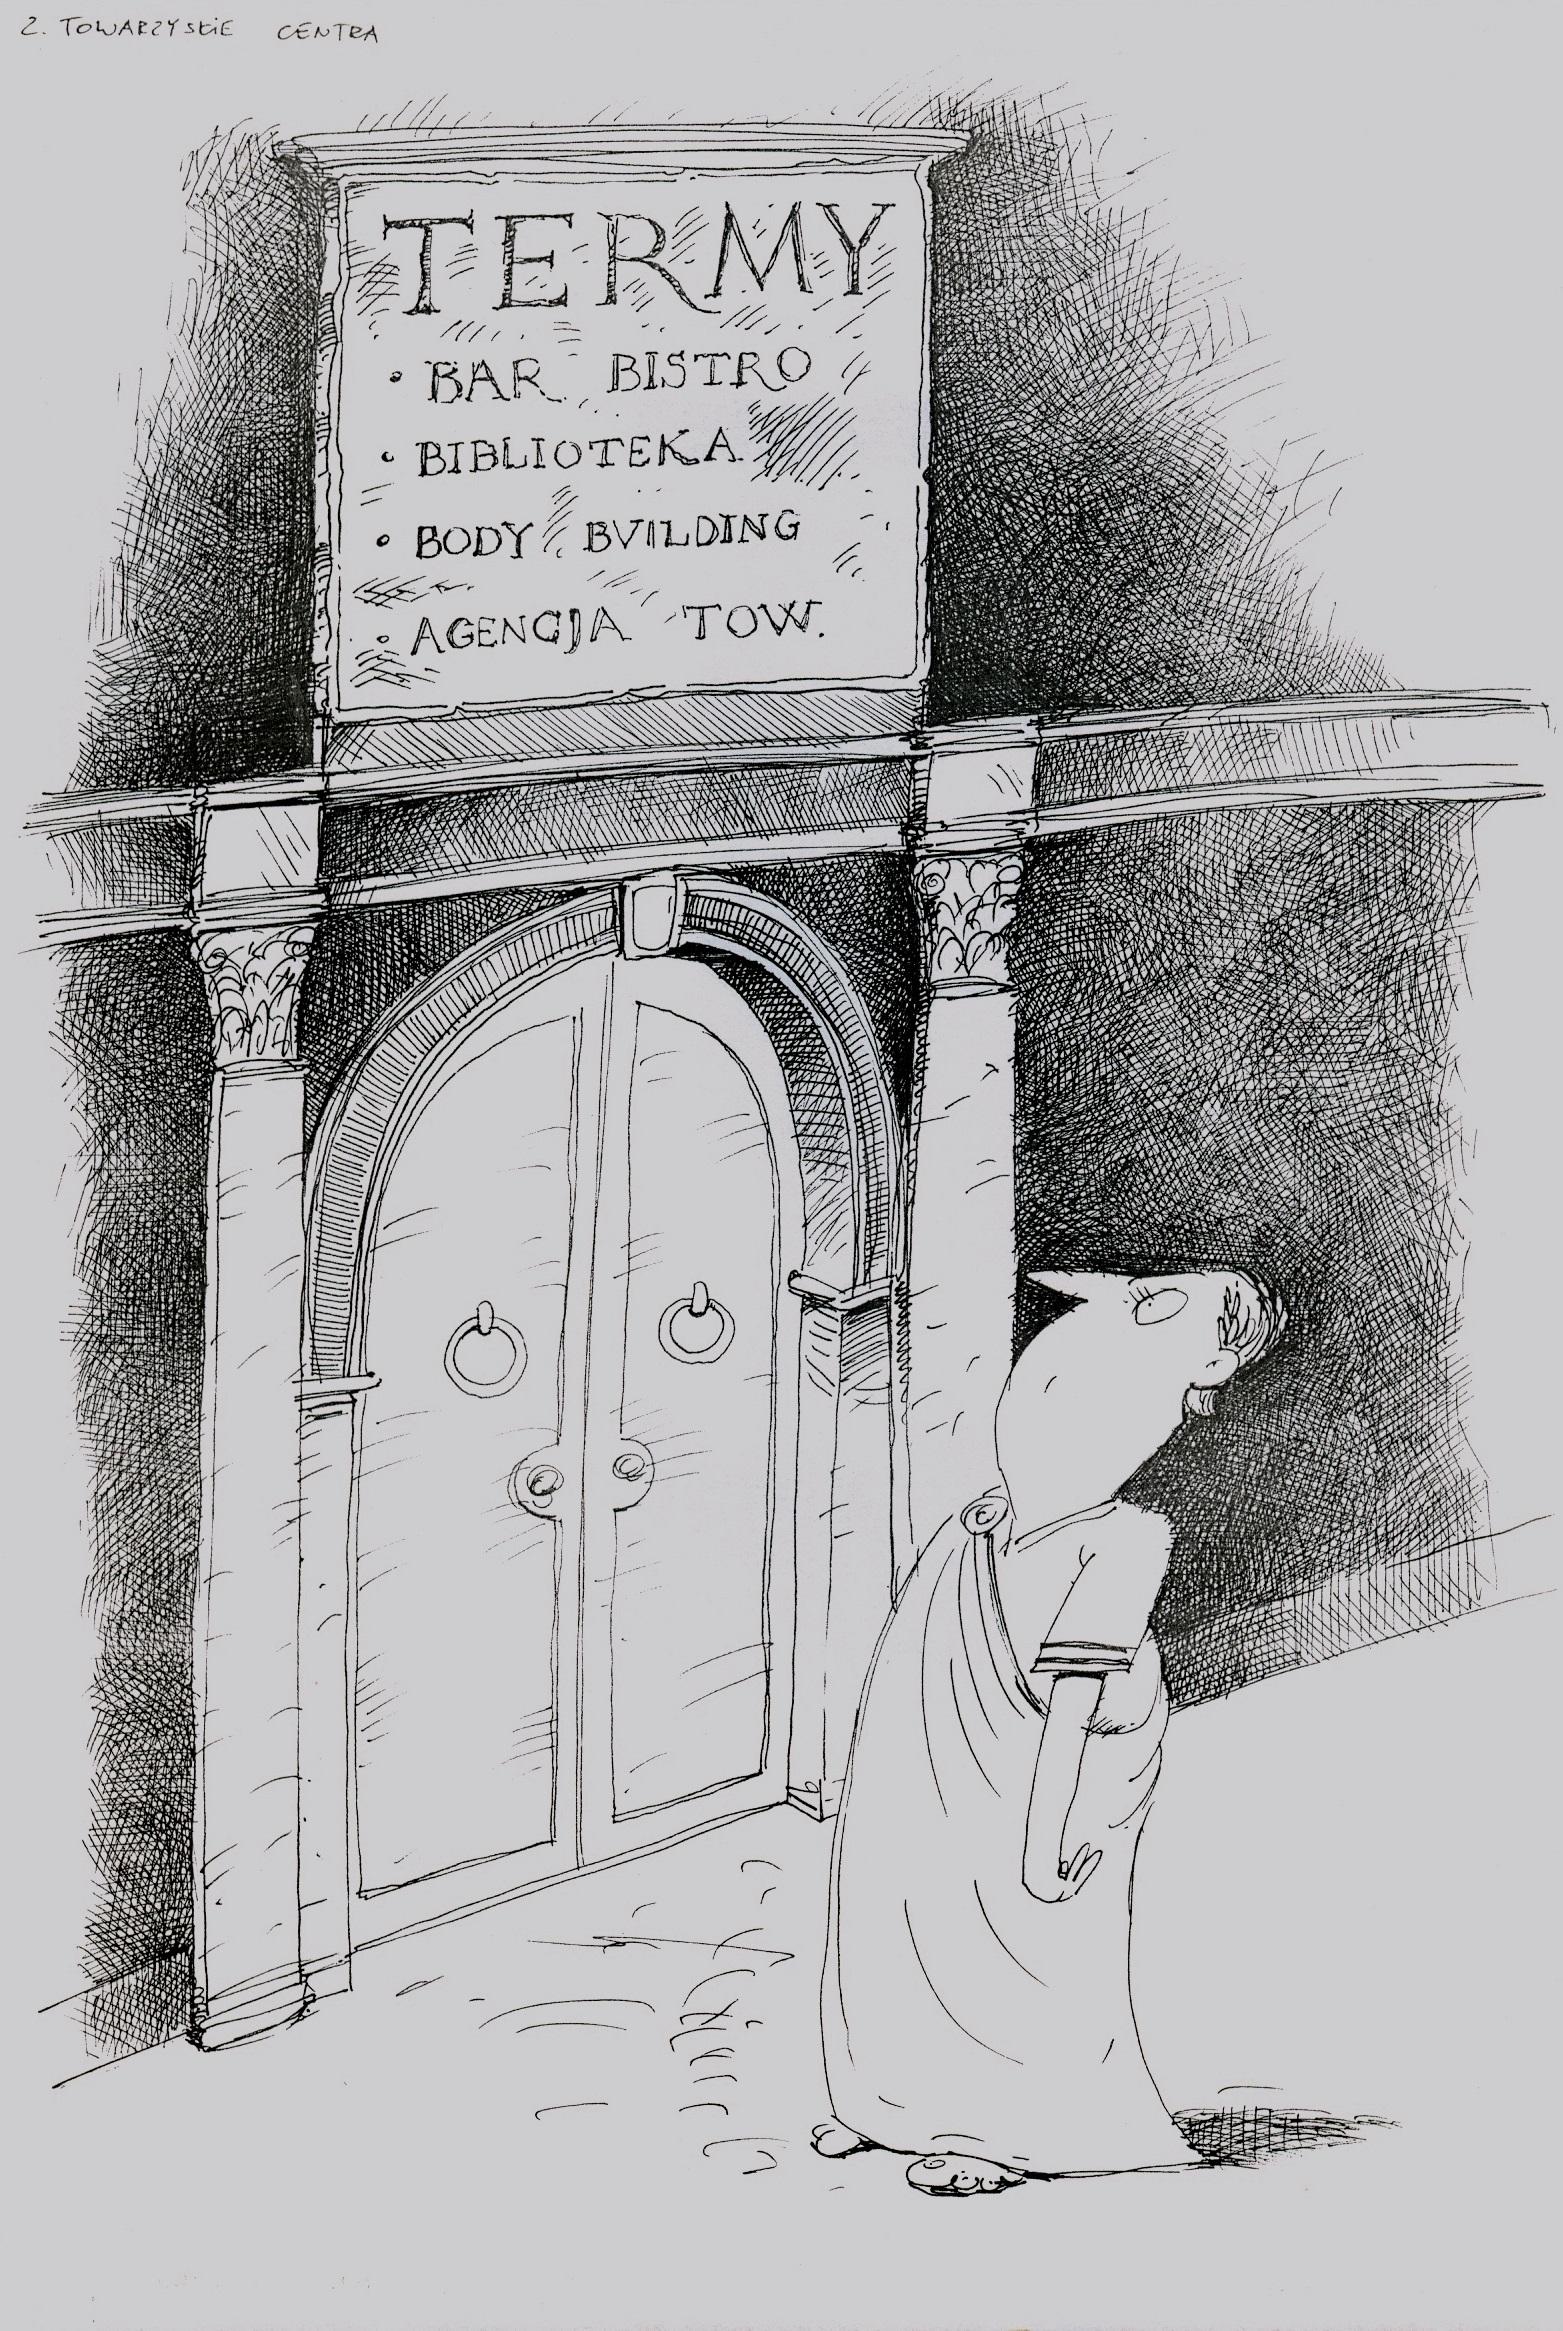 2. TOWARZYSKIE CENTRA
TERMY
• BAR BISTRO
• BIBLIOTEKA
• BODY BVILDING
• AGENCJA TOW.